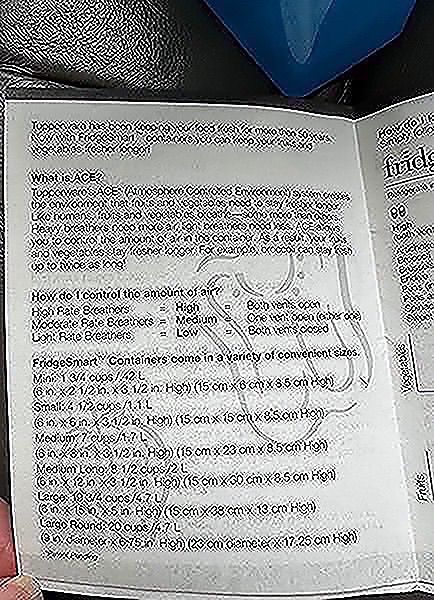 Tupperware has been keeping your food fresh for more than 50 years.
What is ACE?
Tupperware's ACE* (Atmosphere Controlled Environment) system
that fruits and vegetables need to stay
Like humans, fruits and vegetables breathe some more than others.
Heavy breathers need more air, light breathers need less.
you to control the amount of air in the container. As a result, your fruits
and vegetables stay fresher longer. For example, broccoli can stay fresh
up to twice as long!
How do I control the amount of air?
High Rate Breathers = High = Both vents open
Moderate Rate Breathers = Medium = One vent open (either one)
Light Rate Breathers = Low = Both vents closed
FridgeSmart™ Containers come in a variety of convenient sizes.
Mini: 1 3/4 cups/.42 L
(6 in. x 2 1/2 in. x 3 1/2 in. High) (15 cm x 6 cm x 8.5 cm High)
Small: 4 1/2 cups/1.1 L
(6 in. x 6 in. x 3 1/2 in. High) (15 cm x 15 cm x 8.5 cm High)
Medium: 7 cups/1.7 L
(6 in. x 9 in. x 3 1/2 in. High) (15 cm x 23 cm x 8.5 cm High)
Medium Long: 8 1/2 cups/2 L
(6 in. x 12 in. x 3 1/2 in. High) (15 cm x 30 cm x 8.5 cm High)
Large: 19 3/4 cups/4.7 L
(6 in. x 15 in. x 5 in. High) (15 cm x 38 cm x 13 cm High)
Large Round: 20 cups/4.7 L
(9 in. diameter x 6.75 in. High) (23 cm diameter x 17.25 cm High)
fridg
Vegetables
Fruits